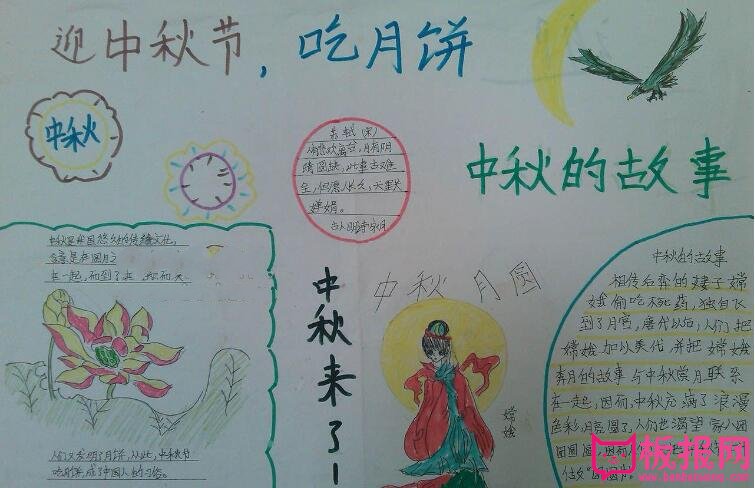 迎中秋节，吃月饼
中秋
苏轼(宋)
人有悲欢离合，月有阴
晴圆缺，此事古难
全，但愿人长久，
婵娟。
中秋的故事
中秋
一起，
人们又发明了月饼，从此，中秋节
吃月饼，成了中国人的习俗。
中秋来了！
中秋月圆
嫦娥
中秋的故事
相传后羿的妻子嫦
娥偷吃不死药，独自飞
到了月宫，唐代以后，人们把
嫦娥加以美化，并把嫦娥
奔月的故事与中秋赏月联系
在一起，因而，中秋充满了浪漫
色彩，月亮圆了，人们也渴望家人团
团圆圆，
板报网
www.banbaowang.com